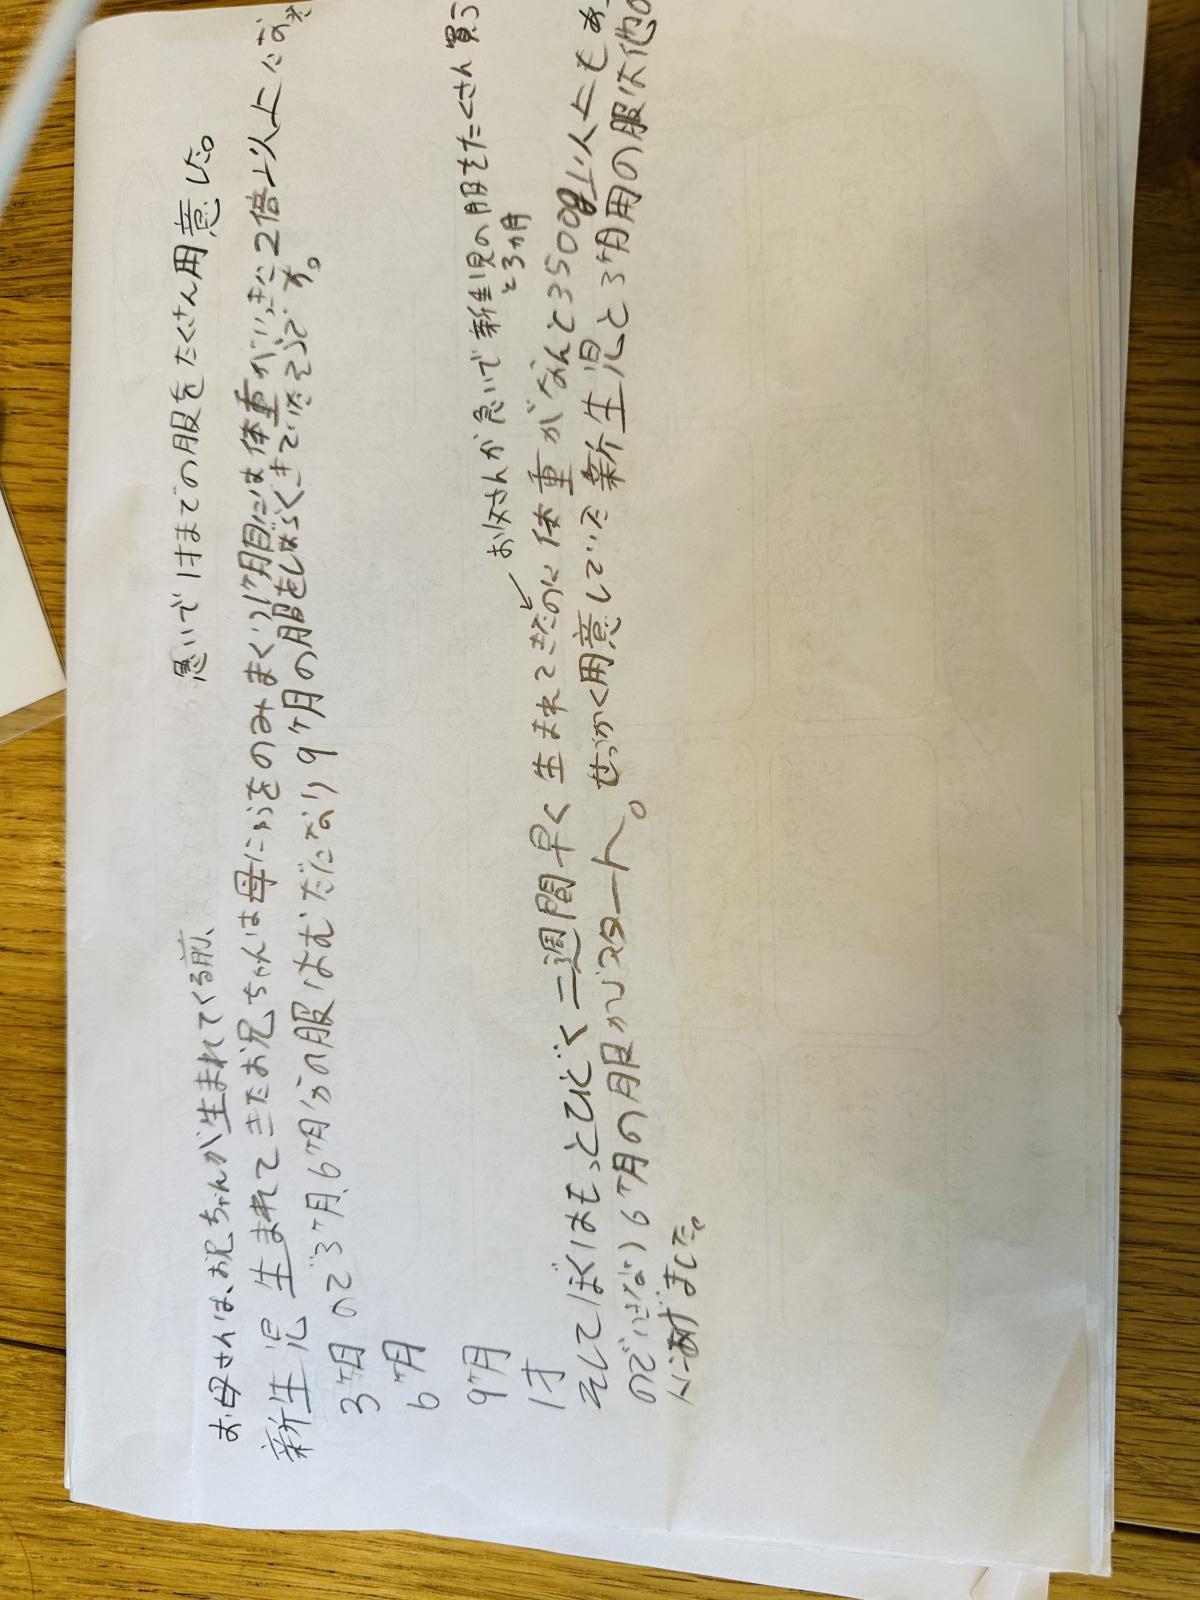 お母さんは、お兄ちゃんが生まれてくる前、急いで1才までの服をたくさん用意した。
新生児 生まれてきたお兄ちゃんは母にゅうをのみまくり1ヶ月目には体重がいっきに2倍以上になった
3ヶ月 ので3ヶ月、6ヶ月分の服はむだになり9ヶ月の服をしばらくきていたそうです。
6ヶ月
9ヶ月
1才
お父さんが急いで新生児の服をたくさん買う
と3か月
そしてぼくはもっとひどく二週間早く生まれてきたのに体重がなんと3500g以上もあ
のでいきなり6ヶ月の服からスタート。せっかく用意していた新生児と3ヶ月用の服は他の
人にあげました。